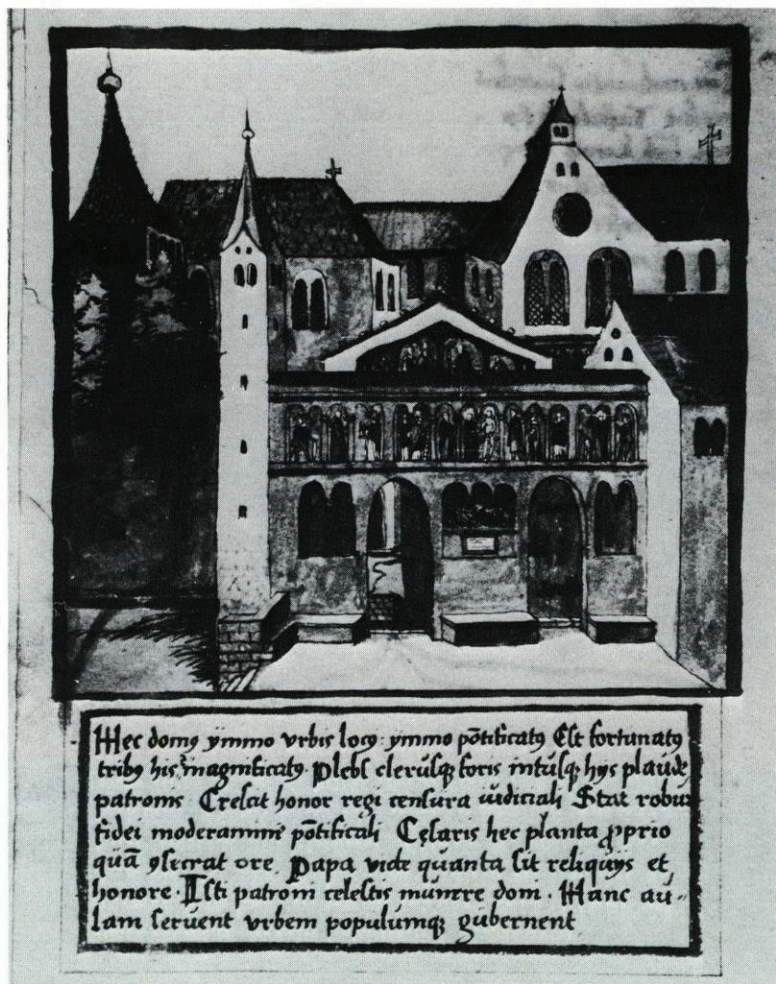 Hec domꝯ ymmo vrbis locꝯ ymmo põtificatꝯ Est fortunatꝯ
tribꝯ his magnificatꝯ. Plebs clerusqꝫ foris intusqꝫ hys plaude
patronis Crescit honor regi censura iudiciali Stat robur
fidei moderamine põtificali Cęsaris hec planta ꝓprio
quã ꝯsecrat ore. Papa vide quanta sit reliquys et
honore. Isti patroni celestis munere doni. Hanc au-
lam seruent vrbem populumqꝫ gubernent